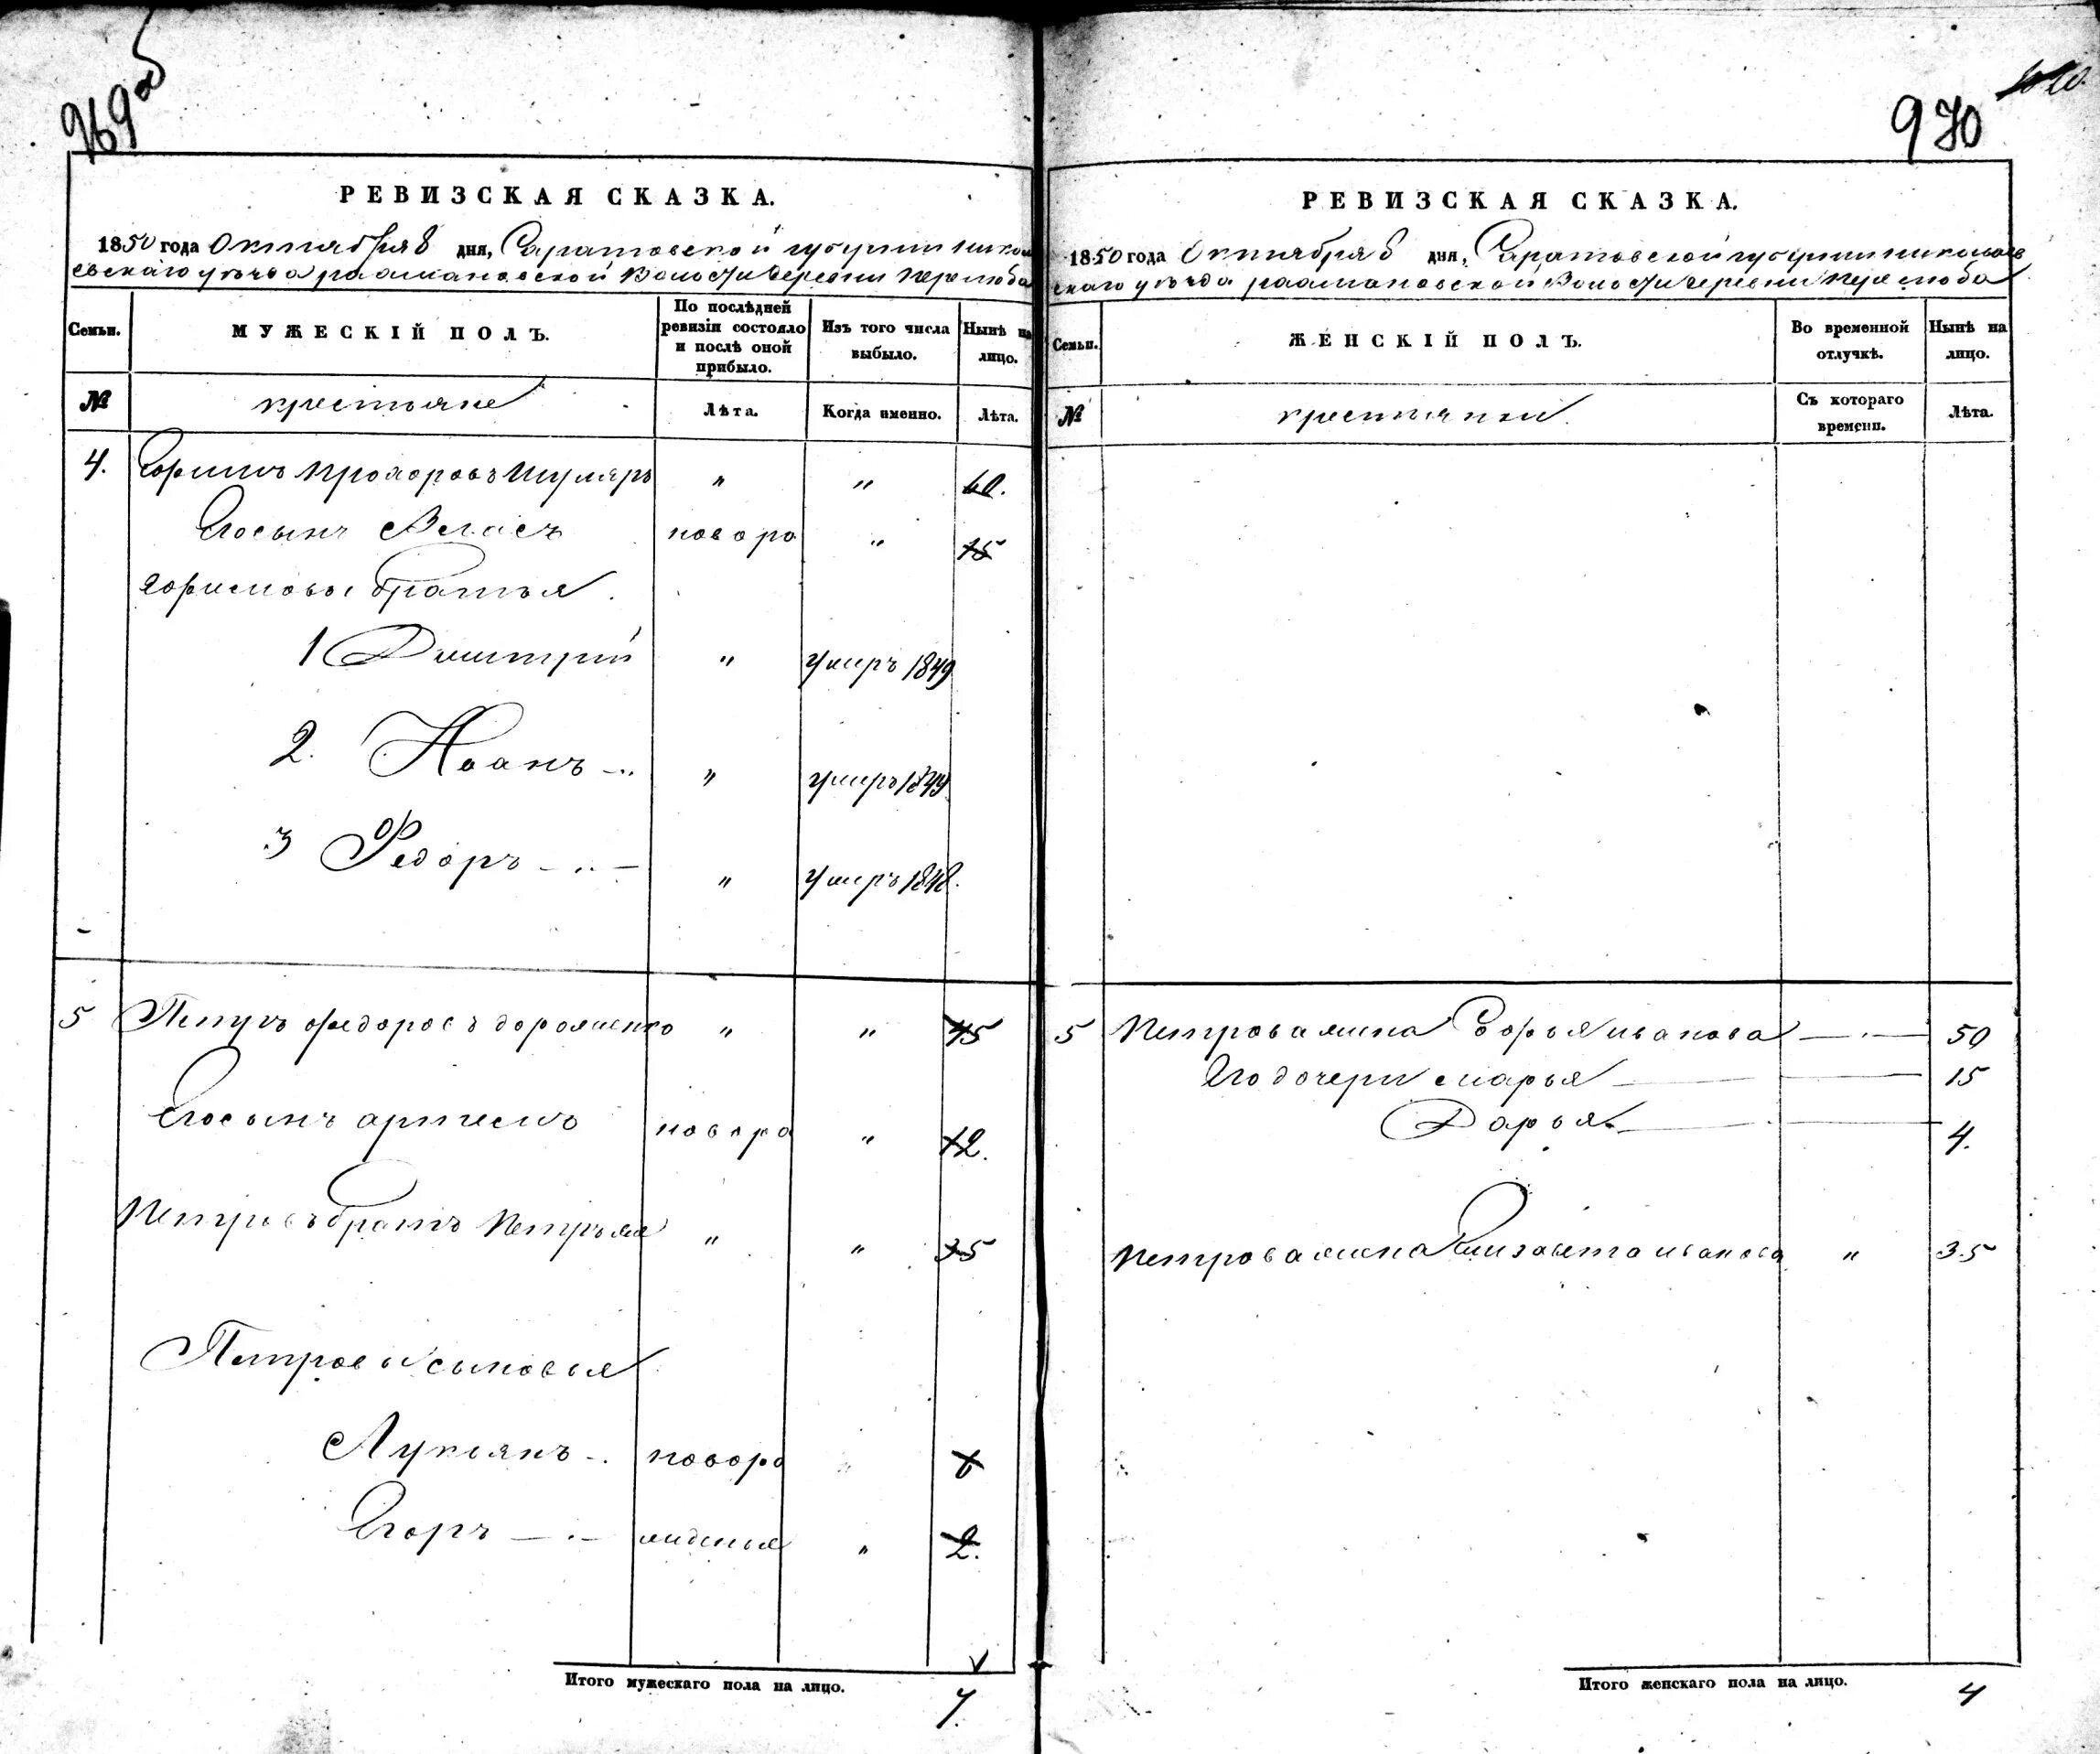 969об
970
РЕВИЗСКАЯ СКАЗКА.
1850 года Октября 6 дня, Саратовской губернии никола
евскаго уѣзда рахмановской Волости деревни перелюба
Семьи.
МУЖЕСКІЙ ПОЛЪ.
По послѣдней ревизіи состояло и послѣ оной прибыло.
Изъ того числа выбыло.
Нынѣ на лицо.
№
крестьяне
Лѣта.
Когда именно.
Лѣта.
4. Ефимъ прохоровъ шуляръ " " 60.
Егосынъ Власъ новоро " 15
ефимовы братья
1 Дмитрій " умиръ 1849
2. Иванъ " умиръ 1849
3 Федоръ " умиръ 1848.
5 Петръ федоровъ дорошенко " " 45
Егосынъ артемъ новоро " 12.
петровъ братъ петръ же " " 35
Петровы сыновья
Лукьянъ новоро " 6
Егоръ " 2.
Итого мужескаго пола на лицо. 7.
РЕВИЗСКАЯ СКАЗКА.
1850 года Октября 6 дня, Саратовской губернии николаев
скаго уѣзда рахмановской Волости деревни перелюба
Семьи.
ЖЕНСКІЙ ПОЛЪ.
Во временной отлучкѣ.
Нынѣ на лицо.
№
крестьянки.
Съ котораго времени.
Лѣта.
5 петрова жина Софья иванова 50
Его дочери марья 15
Дарья 4.
петрова жина Елизавета иванова " 35
Итого женскаго пола на лицо. 4